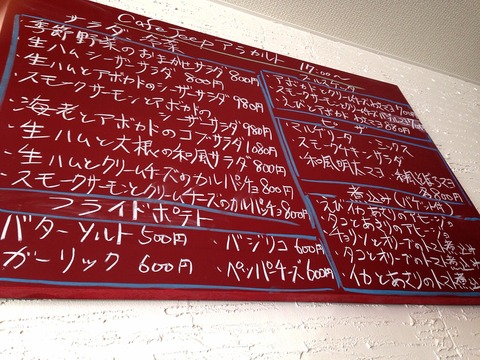 Cafe Jeep アラカルト 17:00〜
サラダ・前菜
季節野菜のおまかせサラダ 800円
・生ハムシーザーサラダ 800円
・生ハムとアボカドのシーザーサラダ 980円
・スモークサーモンとアボカドの
シーザーサラダ 980円
・海老とアボカドのコブサラダ 1080円
・生ハムと大根の和風サラダ 800円
・生ハムとクリームチーズのカルパッチョ 800円
・スモークサーモンとクリームチーズのカルパッチョ 800円
フライドポテト
バターソルト 500円
・バジリコ 600円
ガーリック 600円
・ペペパチーズ 600円
・アボカドとクリームチーズ
スモークサーモンクリームチーズ
・えびとアボカド 880円
ピザ
・マルゲリータ ・ミックス
・スモークチキンサラダ
・和風明太マヨ
各800円
煮込み(バゲット付)
・えびとあさりのアヒージョ
・タコとあさりのアヒージョ
・チョリソとオリーブのトマト煮込み
・タコとオリーブのトマト煮込み
・イカとあさりのトマト煮込